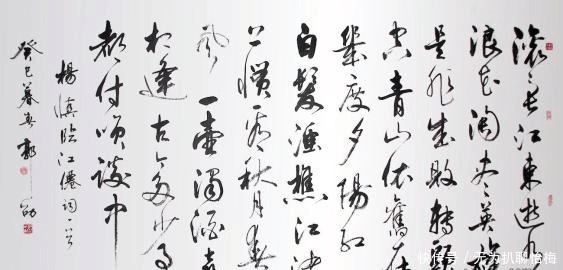 滚々长江東逝水
浪花淘尽英雄
是非成败转头
空青山依舊在
几度夕陽红
白髮渔樵江渚
上惯看秋月春
风一壶浊酒喜
相逢古今多少事
都付笑谈中
楊慎临江僊词一首
癸巳暮春郭
快传号